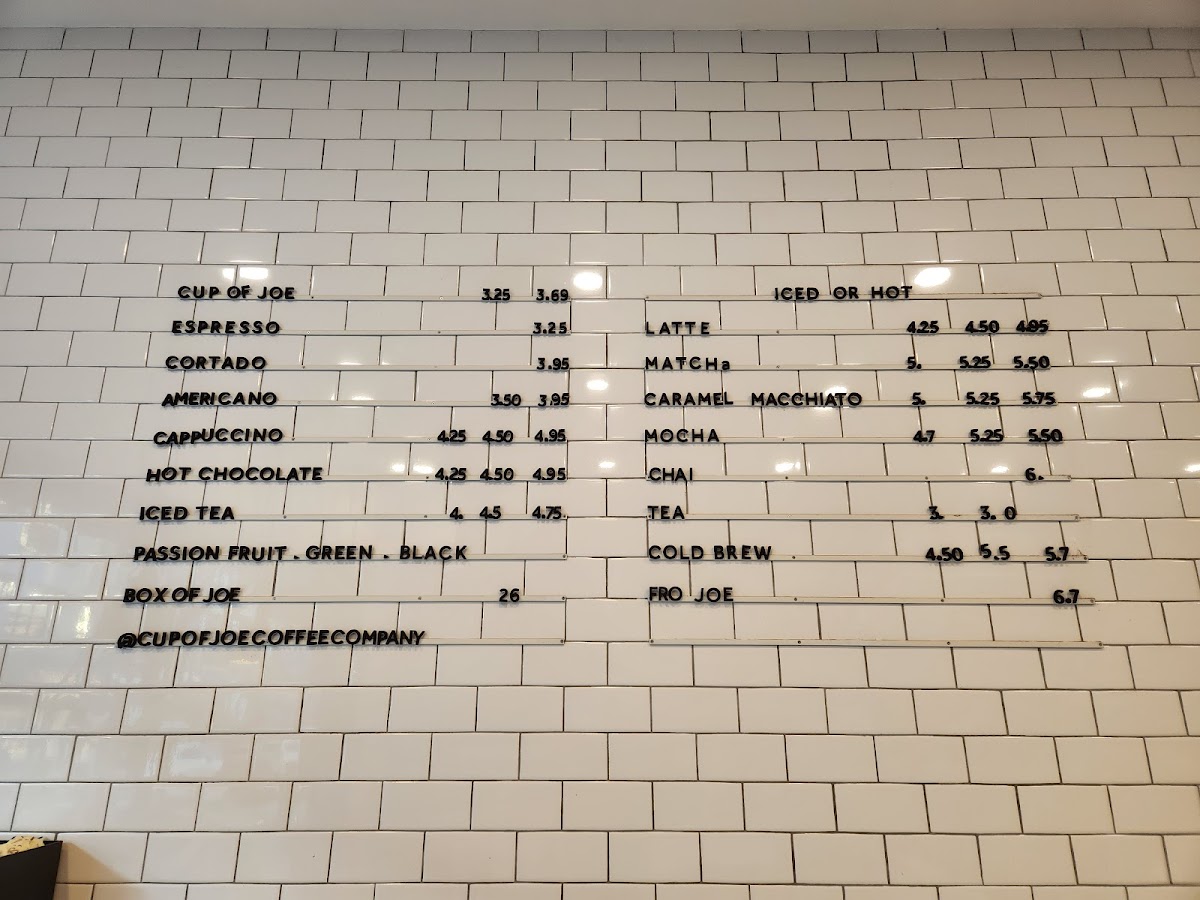 CUP OF JOE 3.25 3.69
ESPRESSO 3.25
CORTADO 3.95
AMERICANO 3.50 3.95
CAPPUCCINO 4.25 4.50 4.95
HOT CHOCOLATE 4.25 4.50 4.95
ICED TEA 4. 4.5 4.75
PASSION FRUIT . GREEN . BLACK
BOX OF JOE 26
@CUPOFJOECOFFEECOMPANY
ICED OR HOT
LATTE 4.25 4.50 4.95
MATCHa 5. 5.25 5.50
CARAMEL MACCHIATO 5. 5.25 5.75
MOCHA 4.7 5.25 5.50
CHAI 6.
TEA 3. 3. 0
COLD BREW 4.50 5.5 5.7
FRO JOE 6.7